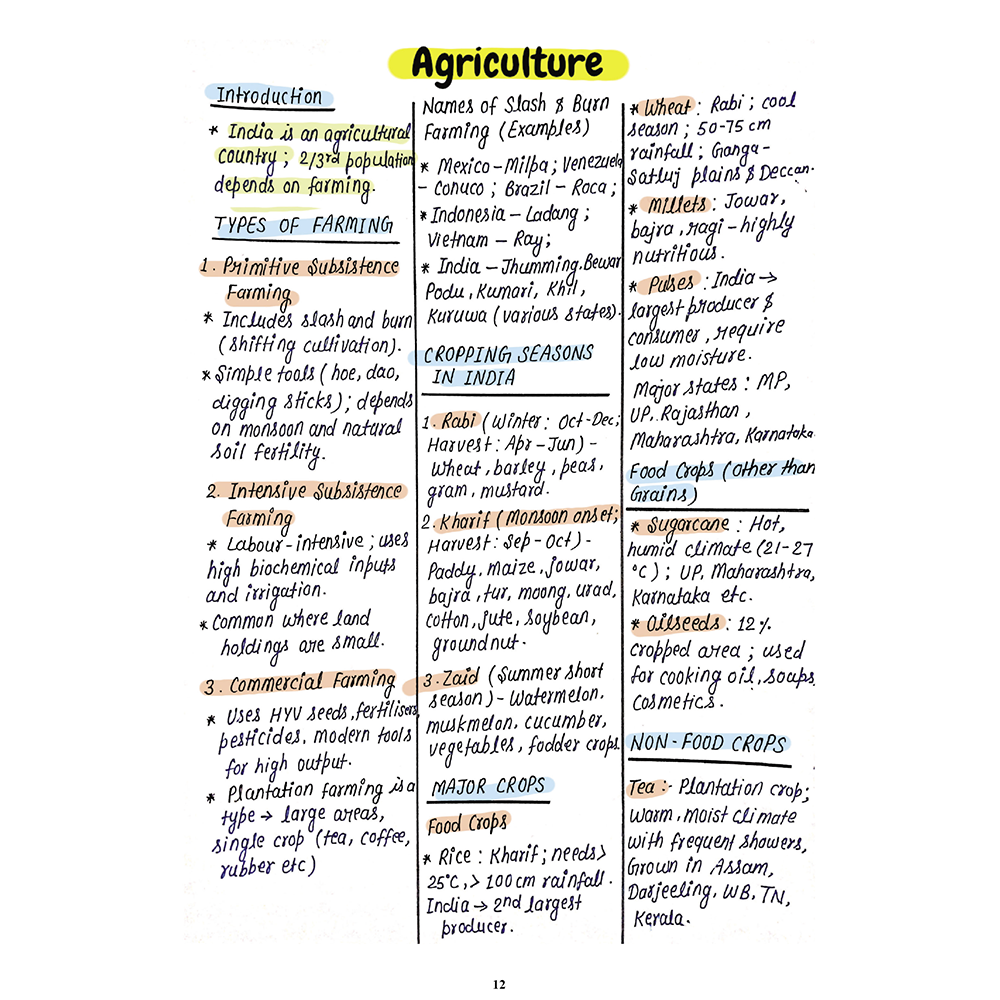 Agriculture
Introduction
* India is an agricultural
country; 2/3rd population
depends on farming.
TYPES OF FARMING
1. Primitive Subsistence
Farming
* Includes slash and burn
(shifting cultivation).
* Simple tools (hoe, dao,
digging sticks); depends
on monsoon and natural
soil fertility.
2. Intensive Subsistence
Farming
* Labour-intensive; uses
high biochemical inputs
and irrigation.
* Common where land
holdings are small.
3. Commercial Farming
* Uses HYV seeds, fertilisers,
pesticides, modern tools
for high output.
* Plantation farming is a
type → large areas,
single crop (tea, coffee,
rubber etc)
Names of Slash & Burn
Farming (Examples)
* Mexico-Milpa; Venezuela
- Conuco; Brazil - Roca;
* Indonesia - Ladang;
Vietnam - Ray;
* India - Jhumming, Bewar
Podu, Kumari, Khil,
Kuruwa (various states).
CROPPING SEASONS
IN INDIA
1. Rabi (Winter: Oct-Dec;
Harvest: Apr-Jun) -
Wheat, barley, peas,
gram, mustard.
2. Kharif (Monsoon onset;
Harvest: Sep-Oct) -
Paddy, maize, jowar,
bajra, tur, moong, urad,
cotton, jute, soybean,
groundnut.
3. Zaid (Summer short
season) - Watermelon,
muskmelon, cucumber,
vegetables, fodder crops
MAJOR CROPS
Food Crops
* Rice: Kharif; needs >
25°C, > 100 cm rainfall.
India → 2nd largest
producer.
* Wheat: Rabi; cool
season; 50-75 cm
rainfall; Ganga-
Satluj plains & Deccan.
* Millets: Jowar,
bajra, ragi - highly
nutritious.
* Pulses: India →
largest producer &
consumer, require
low moisture.
Major states: MP,
UP, Rajasthan,
Maharashtra, Karnataka.
Food Crops (Other than
Grains)
* Sugarcane: Hot,
humid climate (21-27
°C); UP, Maharashtra,
Karnataka etc.
* Oilseeds: 12%
cropped area; used
for cooking oil, soaps,
cosmetics.
NON-FOOD CROPS
Tea:- Plantation crop;
warm, moist climate
with frequent showers,
Grown in Assam,
Darjeeling, WB, TN,
Kerala.
12